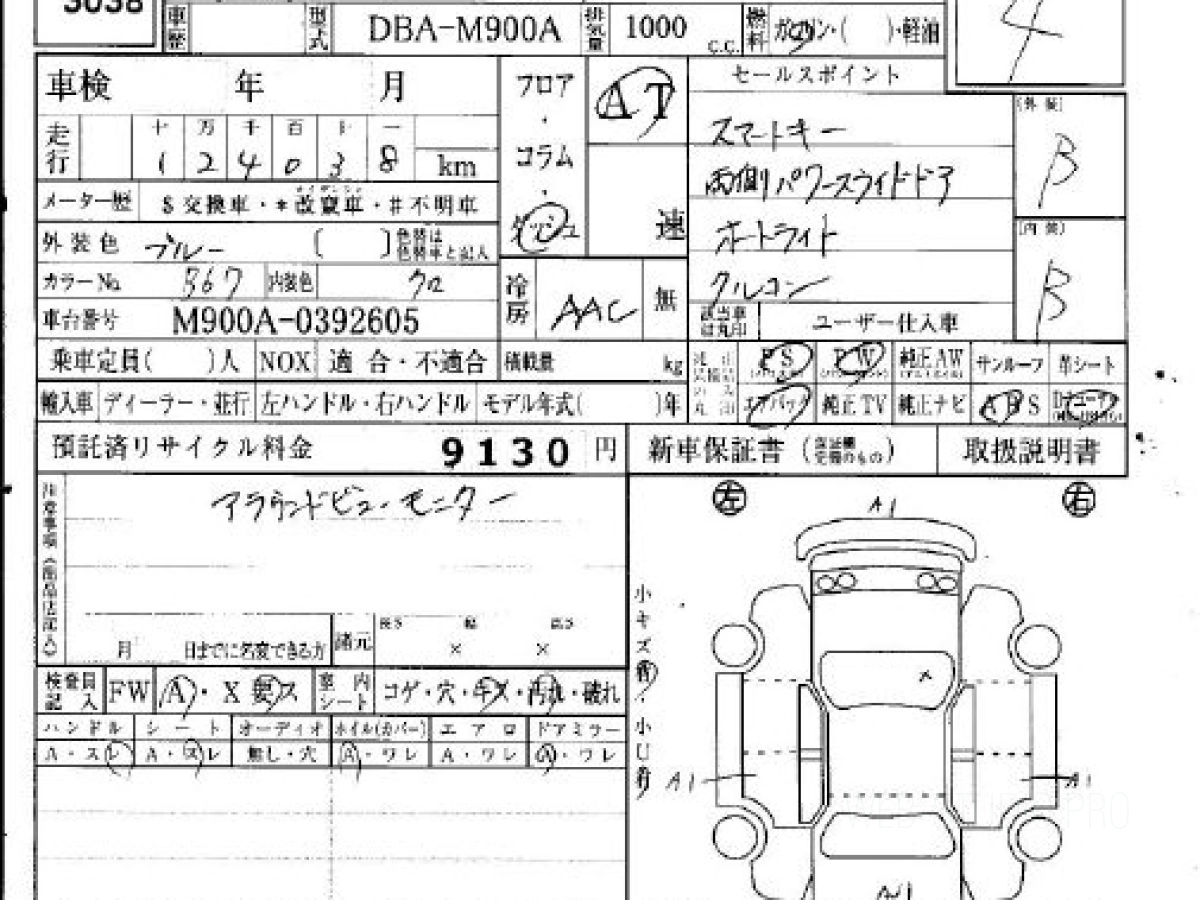 3038
車歴 型式 DBA-M900A 排気量 1000 C.C. 燃料 ガソリン・( )・軽油 4
車検 年 月 フロア・コラム・ダッシュ AT 速 セールスポイント
走行 十 万 千 百 十 一
1 2 4 0 3 8 km
スマートキー
両側パワースライドドア
オートライト
クルコン
[外装] B
[内装] B
メーター歴 $交換車・*改竄車・#不明車
外装色 ブルー [ ] 色替は色替車と記入
カラーNo. B67 内装色 クロ
冷房 AAC 無
車台番号 M900A-0392605
該当車は丸印 ユーザー仕入車
乗車定員( )人 NOX 適合・不適合 積載量 kg
PS PW 純正AW サンルーフ 革シート
輸入車 ディーラー・並行 左ハンドル・右ハンドル モデル年式( )年
エアバッグ 純正TV 純正ナビ ABS
預託済リサイクル料金 9130 円 新車保証書(保証欄完備のもの) 取扱説明書
注意事項(出品店記入)
アラウンドビューモニター
月 日までに名変できる方 諸元 長さ × 幅 × 高さ
検査員記入 FW A・X 要ス 室内シート コゲ・穴・キズ・汚れ・破れ
ハンドル シート オーディオ ホイル(カバー) エアロ ドアミラー
A・スレ A・スレ 無し・穴 A・ワレ A・ワレ A・ワレ
左 A1 右
小キズ有・小U有
×
A1 A1
A1